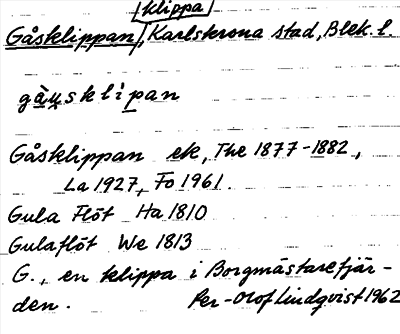 klippa
Gåsklippan, Karlskrona stad, Blek. l.
gåusklipan
Gåsklippan ek, The 1877-1882,
La 1927, Fo 1961.
Gula Flöt Ha 1810
Gulaflöt We 1813
G., en klippa i Borgmästarefjär-
den. Per-Olof Lindqvist 1962